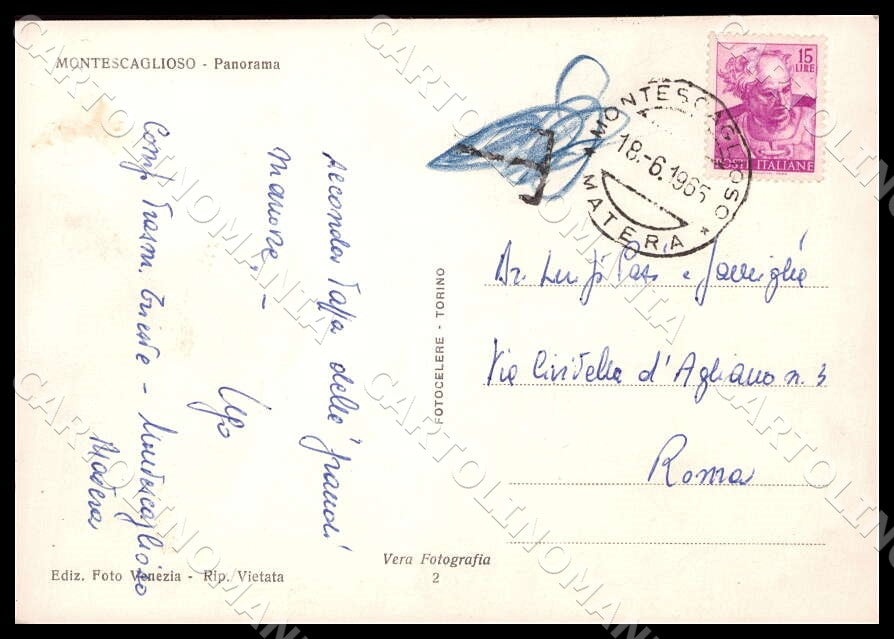 MONTESCAGLIOSO - Panorama
15
LIRE
POSTE ITALIANE
* MONTESCAGLIOSO *
18.-6.1965
MATERA
T
seconda tappa delle grandi
manovre. -
Ugo
Comp. Trasm. Trieste - Montescaglioso
Matera
FOTOCELERE - TORINO
Dr. Luigi e Famiglia
Via Civitella d'Agliano n. 3
Roma
Vera Fotografia
2
Ediz. Foto Venezia - Rip. Vietata
CARTOLINOMANIA